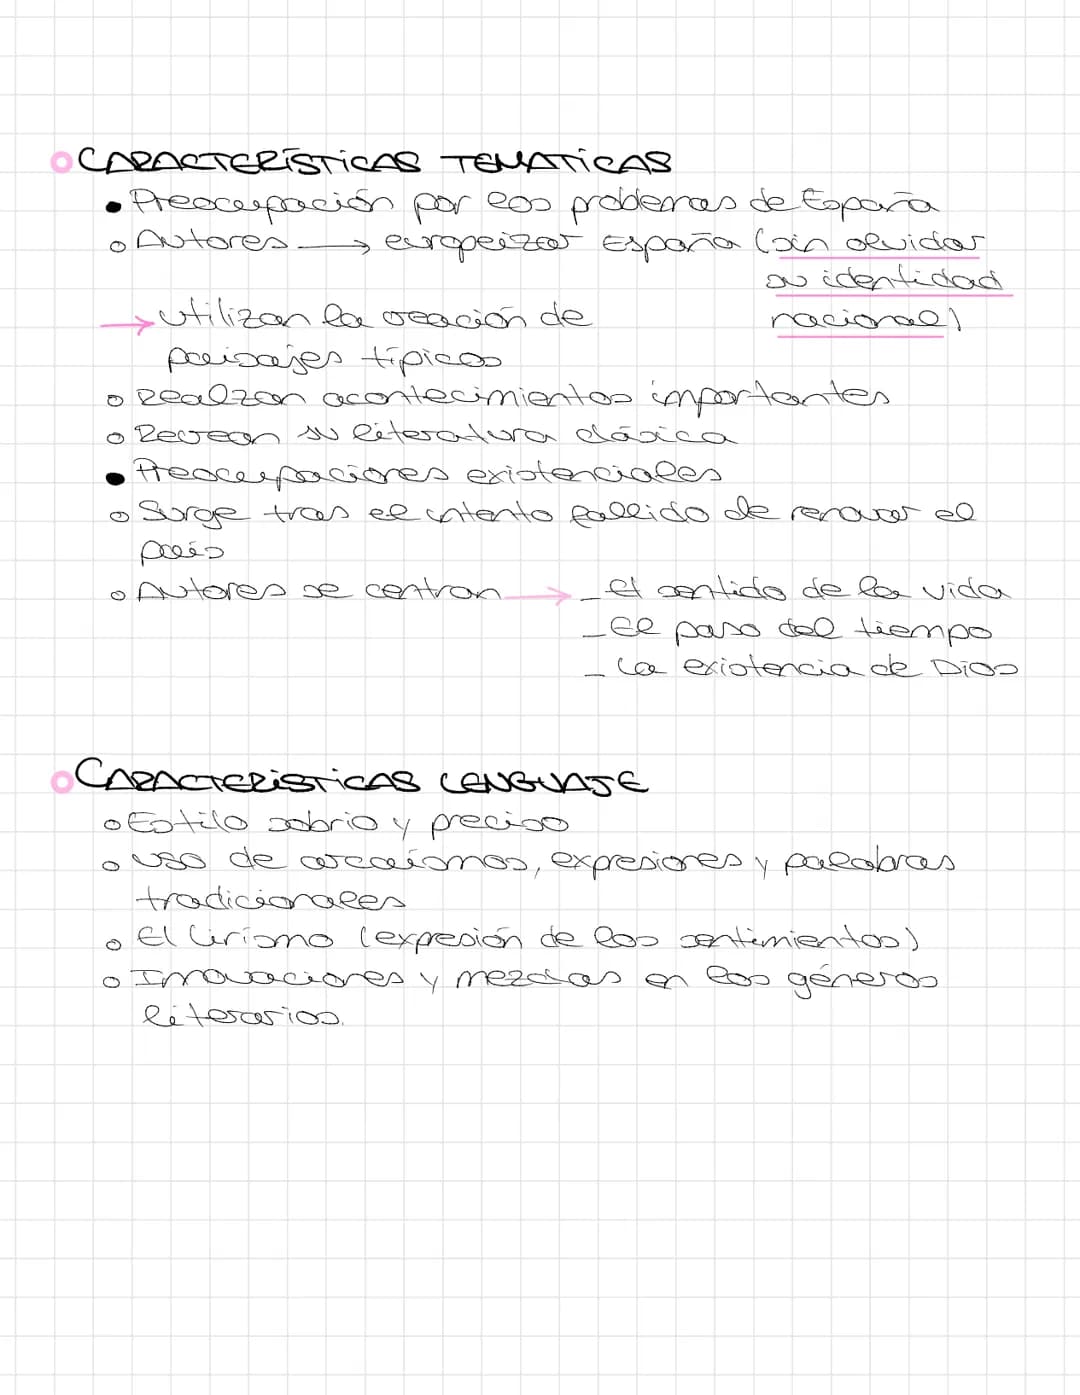 CARACTERÍSTICAS TEMATICAS
Preocupación por los problemas de España
Autores → europeizar España (sin olvidar
su identidad
nacional)
→ utilizan la creación de
paisajes típicos
Realzan acontecimientos importantes
Recrean su literatura clásica
Preocupaciones existenciales
Surge tras el intento fallido de renovar el
país
Autores se centran → - El sentido de la vida
- El paso del tiempo
- La existencia de Dios
CARACTERÍSTICAS LENGUAJE
Estilo sobrio y preciso
uso de arcaísmos, expresiones y palabras
tradicionales
El lirismo (expresión de los sentimientos)
Innovaciones y mezclas en los géneros
literarios.